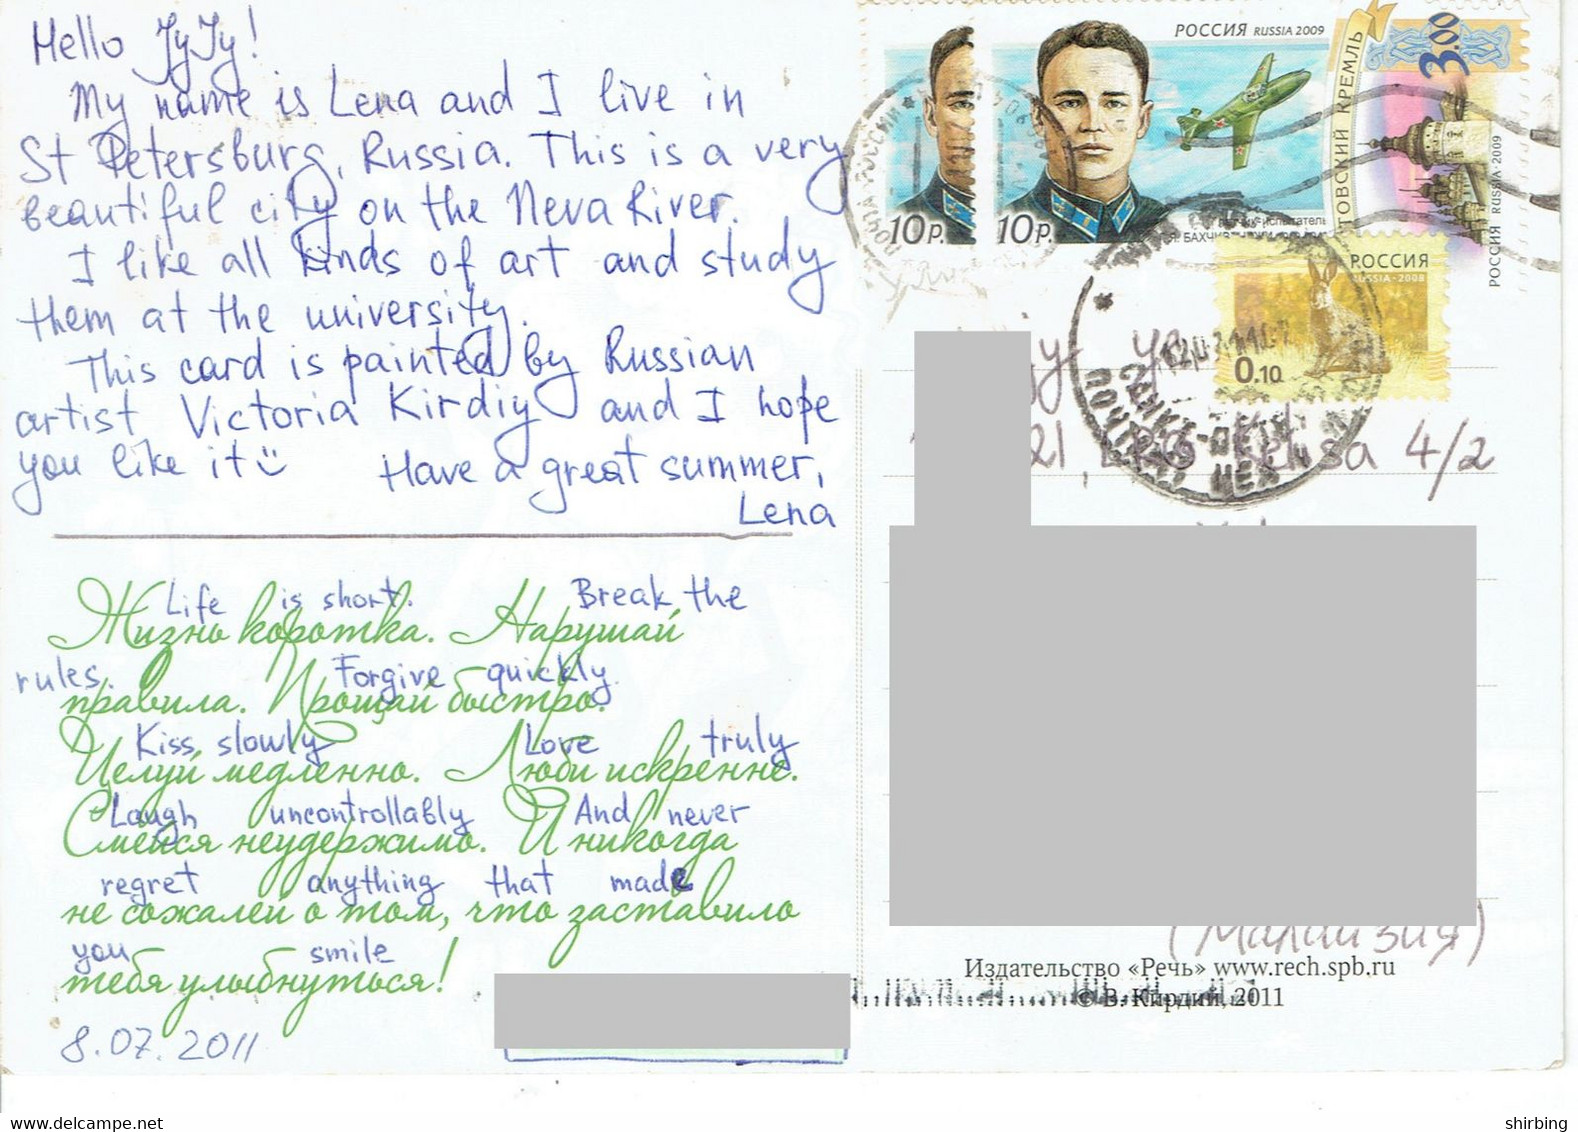 Hello JyJy!
My name is Lena and I live in
St Petersburg, Russia. This is a very
beautiful city on the Neva River.
I like all kinds of art and study
them at the university.
This card is painted by Russian
artist Victoria Kirdiy and I hope
you like it
Have a great summer,
Lena
Life is short. Break the
Жизнь коротка. Нарушай
rules. Forgive quickly.
правила. Прощай быстро.
Kiss slowly Love truly
Целуй медленно. Люби искренне.
Laugh uncontrollably And never
Смейся неудержимо. И никогда
regret anything that made
не сожалей о том, что заставило
you smile
тебя улыбнуться!
8.07.2011
РОССИЯ RUSSIA 2009
10р.
10р.
3.00
ТОВСКИЙ КРЕМЛЬ
РОССИЯ RUSSIA · 2009
РОССИЯ
RUSSIA · 2008
0.10
4/2
(Малайзия)
Издательство «Речь» www.rech.spb.ru
© В. Кирдий, 2011
www.delcampe.net
shirbing